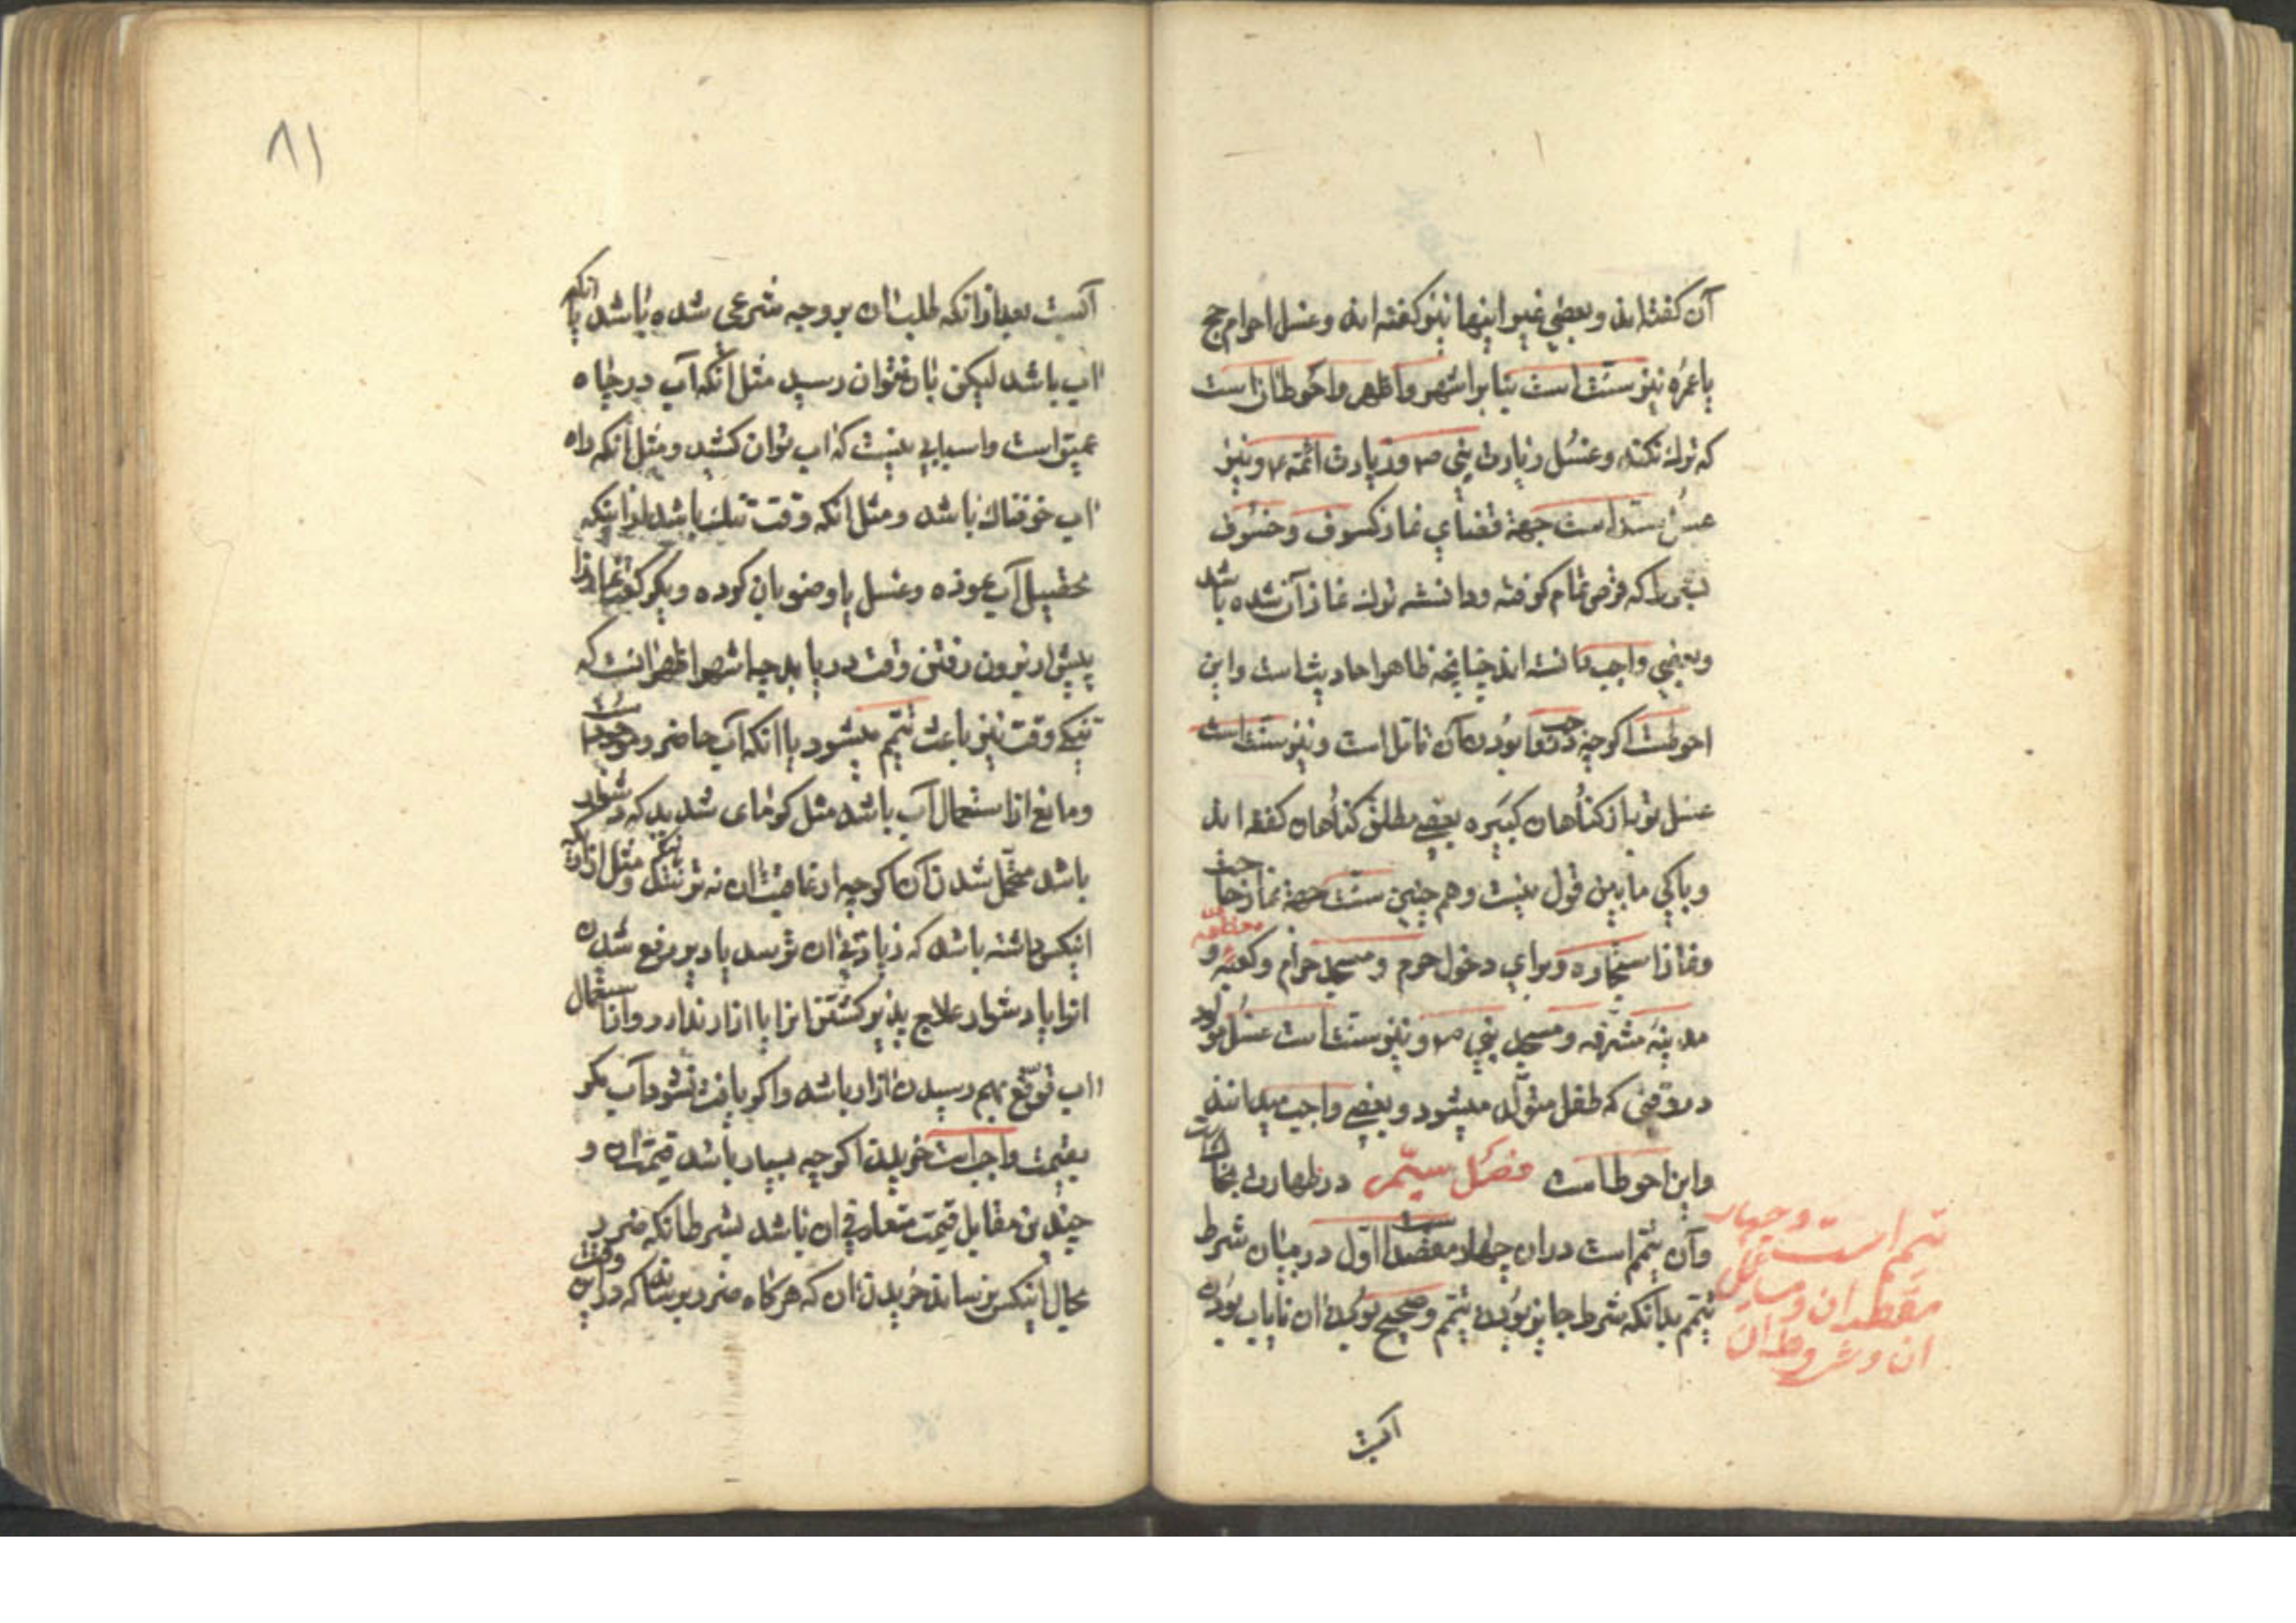 آن کفته‌اند و بعضی غیر اینها نیز کفته‌اند و غسل احرام حج
یا عمره نیز سنت است بنابر اشهر و اظهر و احوط آن است
که ترک نکند و غسل زیارت نبی ص و زیارت ائمه ع و نیز
غسل سنت است جهة قضای نماز کسوف و خسوف
که قرص تمام کرفته و دانسته ترک نماز آن شده باشد
و بعضی واجب دانسته‌اند چنانچه ظاهر احادیث است و این
احوط است اکرچه در واجب بودن آن تامل است و نیز سنت است
غسل توبه از کناهان کبیره بعضی مطلق کناهان کفته‌اند
و باکی ما باین قول نیست و همچنین سنت جهة نماز حاجت
و نماز استخاره و برای دخول حرم و مسجد حرام و کعبه معظمه و
مدینه مشرفه و مسجد نبی ص و نیز سنت است غسل مولود
در وقتی که طفل متولد میشود و بعضی واجب میدانند
و این احوط است فصل سیم در طهارت
و آن تیمم است در ان چهار مقصد است اول در بیان شرط
تیمم بدانکه شرط جایز بودن تیمم و صحیح بودن ان نایاب بودن
تیمم است و چهار
ان و شروط ان
اکبست
۸۱
آبست بعد از انکه طلب ان بر وجه شرعی شده باشد یا انکه
اب باشد لیکن بان نتوان رسید مثل انکه آب در چاه
عمیق است و اسبابی نیست که اب توان کشید و مثل انکه راه
اب خوفناک باشد و مثل انکه وقت تنک باشد از اینکه
تحصیل آب نموده و غسل یا وضو بان کرده و یکرکعت نماز را
پیش از بیرون رفتن وقت دریابد چه اشهر و اظهر انست که
تنکی وقت نیز باعث تیمم میشود یا انکه آب حاضر و موجود است
و مانع از استعمال آب باشد مثل سرمای شدید که دشوار
باشد متحمل شدن آن اکرچه از عاقبت ان نه ترسد و مثل
اینکس داشته باشد که زیادتی ان ترسد یا دیر مرفع شدن
انرا یا دشوار علاج پذیر کشتن انرا یا ازار ندارد و از استعمال
اب توقع بهم رسیدن ازار باشد و اکر یافت نشود آب مکر
بقیمت واجب است خریدن اکرچه بسیار باشد قیمت ان و
چندین مقابل قیمت متعارفی ان باشد بشرط انکه ضرر
بحال اینکس نرساند خریدن ان که هرکاه ضرر برساند